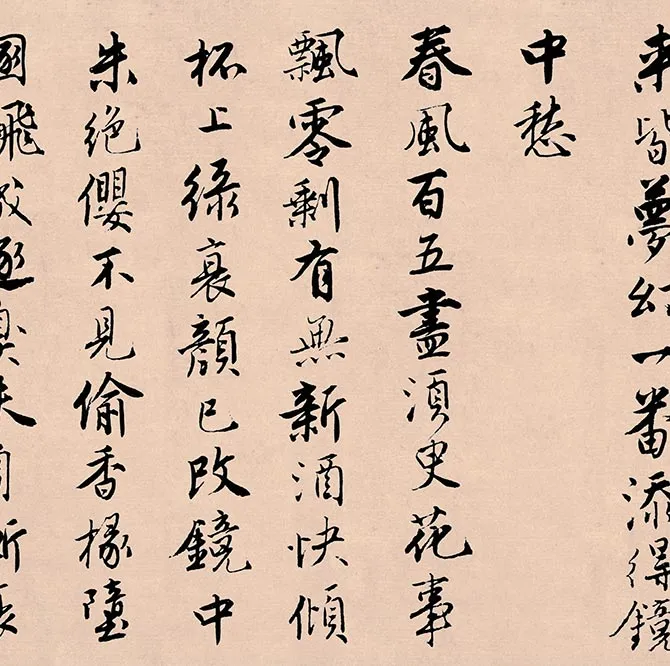 來皆夢幻一番添得鏡
中愁
春風百五盡須臾花事
飄零剩有無新酒快傾
杯上綠衰顏已改鏡中
朱絕纓不見偷香掾墮
逐臭夫